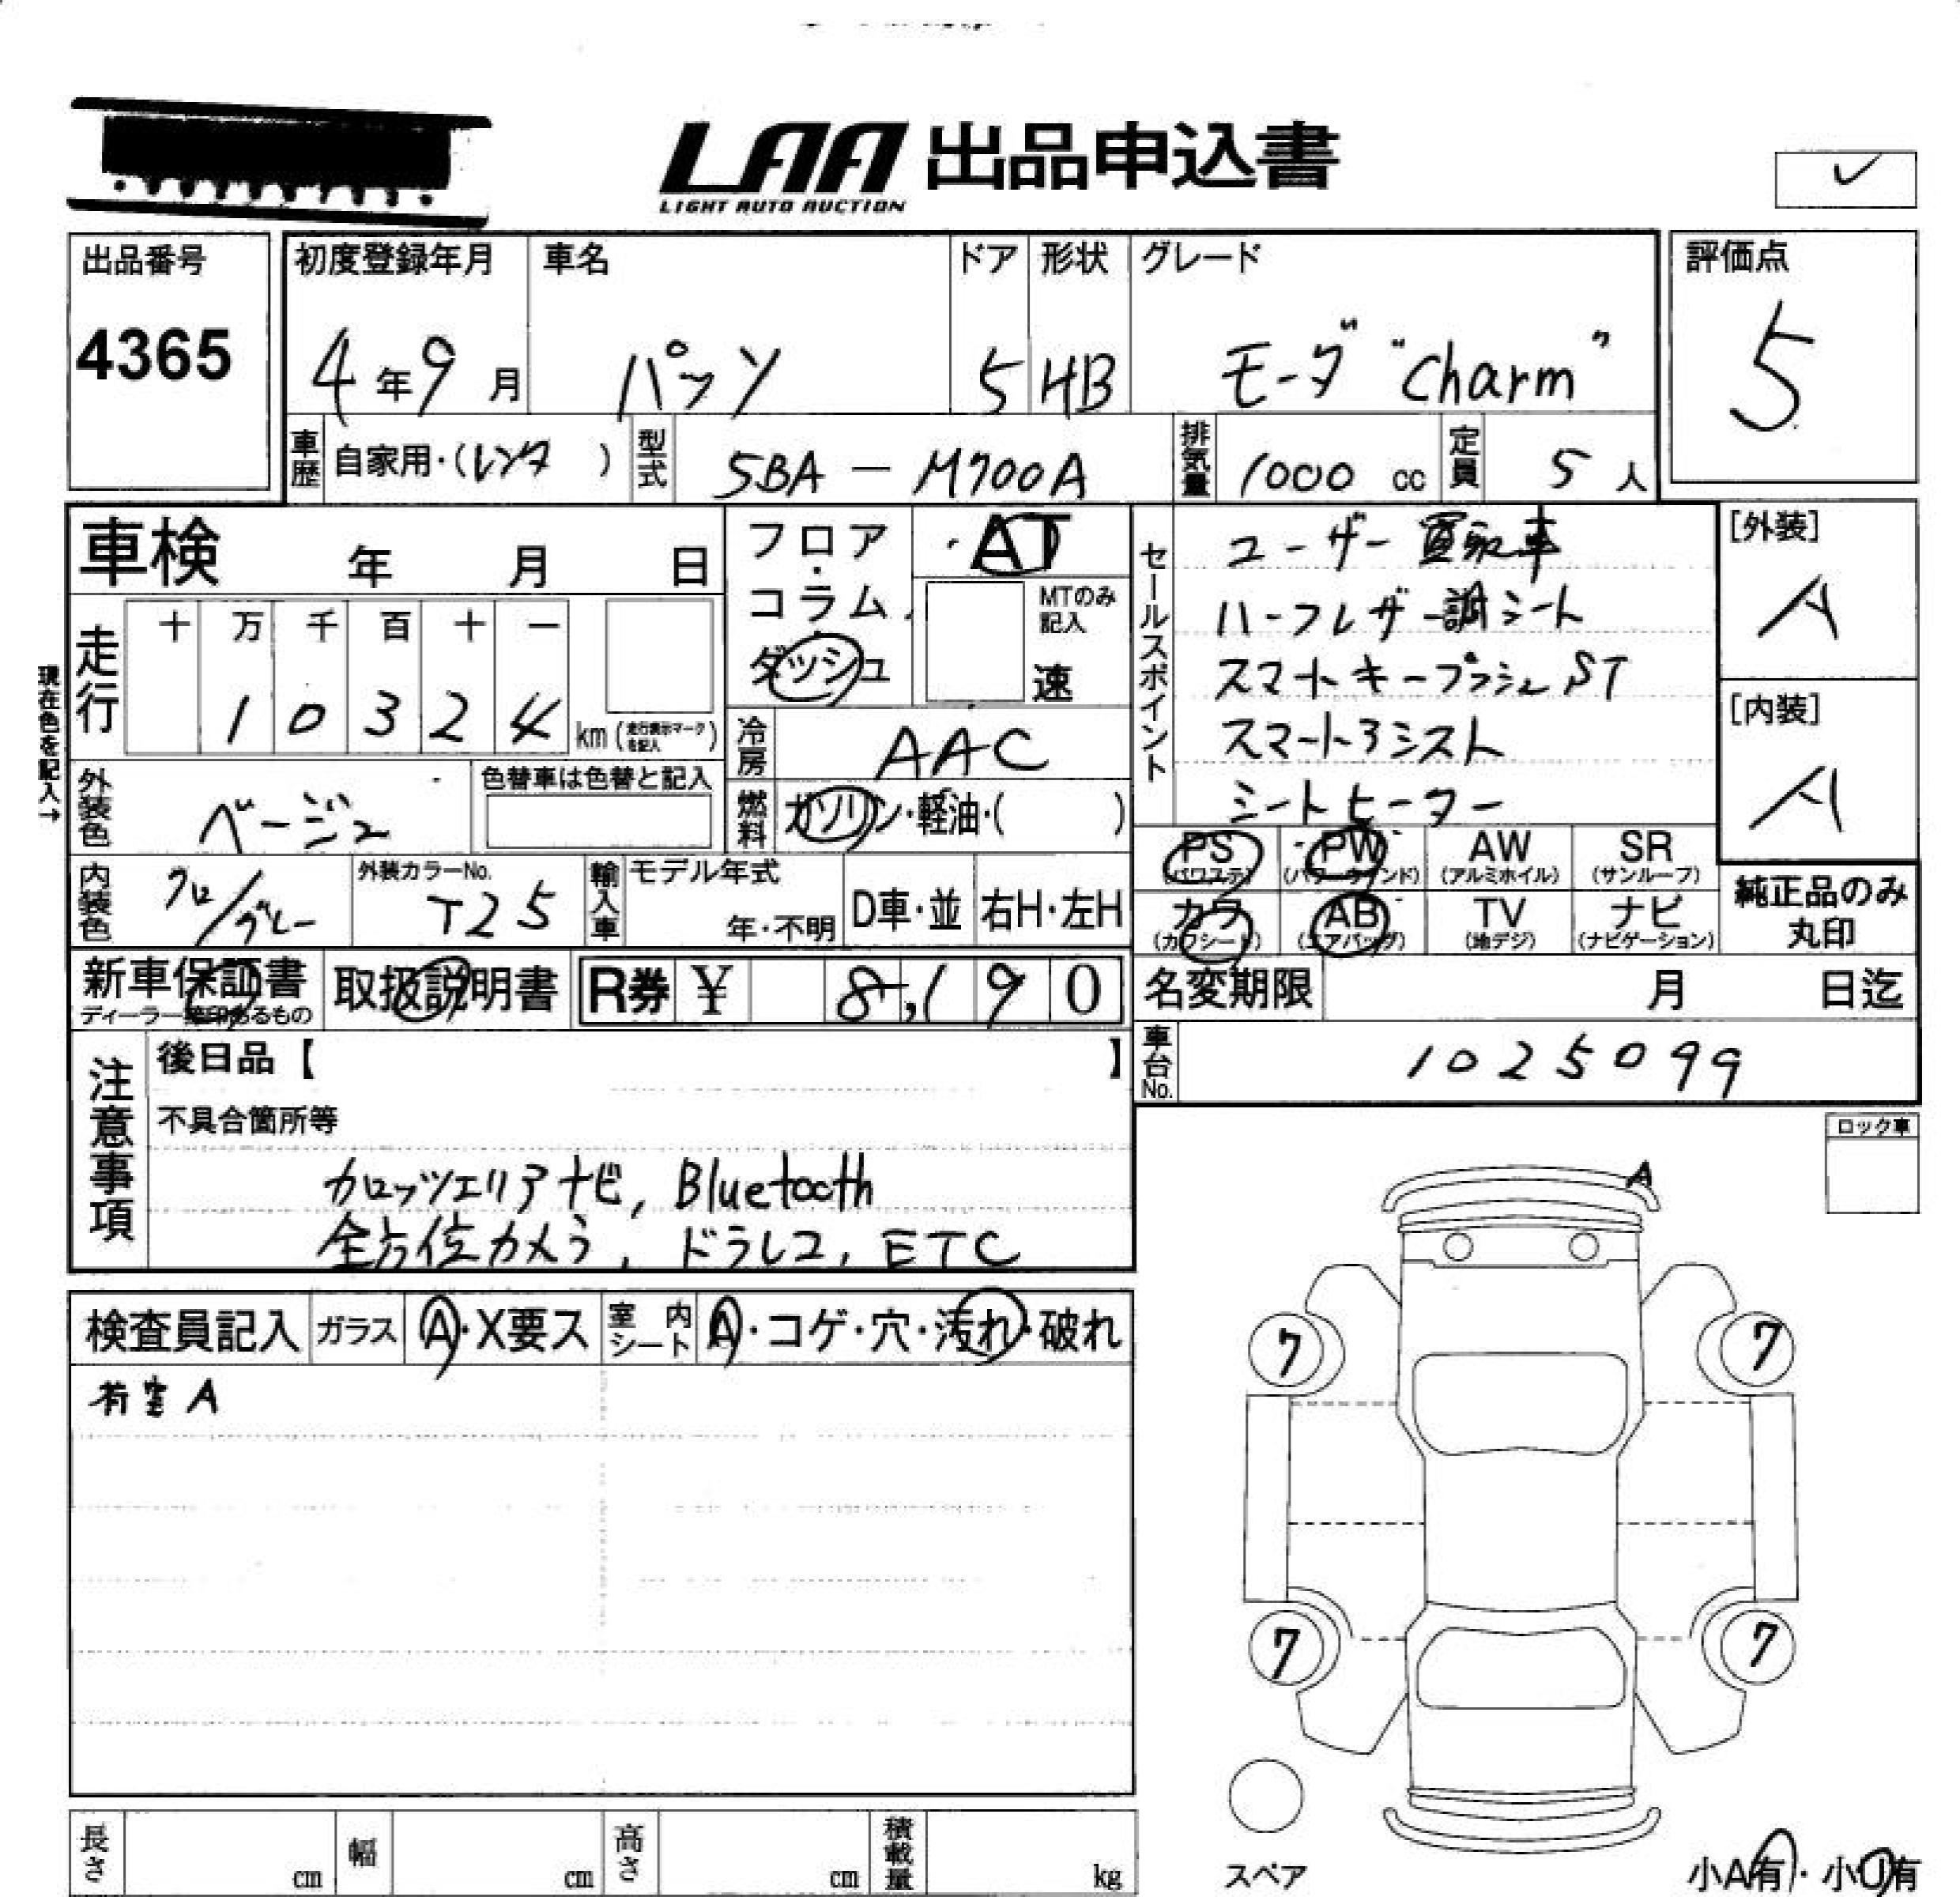 LAA 出品申込書
LIGHT AUTO AUCTION
出品番号
4365
初度登録年月
4年9月
車名
パッソ
ドア
5
形状
HB
グレード
モーダ "Charm"
評価点
5
車歴
自家用・(レンタ )
型式
5BA - M700A
排気量
1000 cc
定員
5 人
車検 年 月 日
現在色を記入→
走行
十 万 千 百 十 一
1 0 3 2 4 km (走行表示マークを記入)
フロア・コラム・ダッシュ
AT
MTのみ記入
速
冷房
AAC
燃料
ガソリン・軽油・( )
外装色
ベージュ
色替車は色替と記入
内装色
クロ/グレー
外装カラーNo.
T25
輸入車
モデル年式
年・不明
D車・並
右H・左H
セールスポイント
ユーザー買取車
ハーフレザー調シート
スマートキープッシュST
スマート3シスト
シートヒーター
[外装]
A
[内装]
A
PS (パワステ)
PW (パワーウインド)
AW (アルミホイル)
SR (サンルーフ)
カワ (カワシート)
AB (エアバッグ)
TV (地デジ)
ナビ (ナビゲーション)
純正品のみ丸印
新車保証書
ディーラー押印あるもの
取扱説明書
R券 ¥ 8,190
名変期限 月 日迄
車台No.
1025099
注意事項
後日品【 】
不具合箇所等
カロッツェリアナビ, Bluetooth
全方位カメラ, ドラレコ, ETC
ロック車
A
検査員記入
ガラス
A・X要ス
室内シート
A・コゲ・穴・汚れ・破れ
荷室A
7 7
7 7
スペア
小A有・小U有
長さ cm
幅 cm
高さ cm
積載量 kg